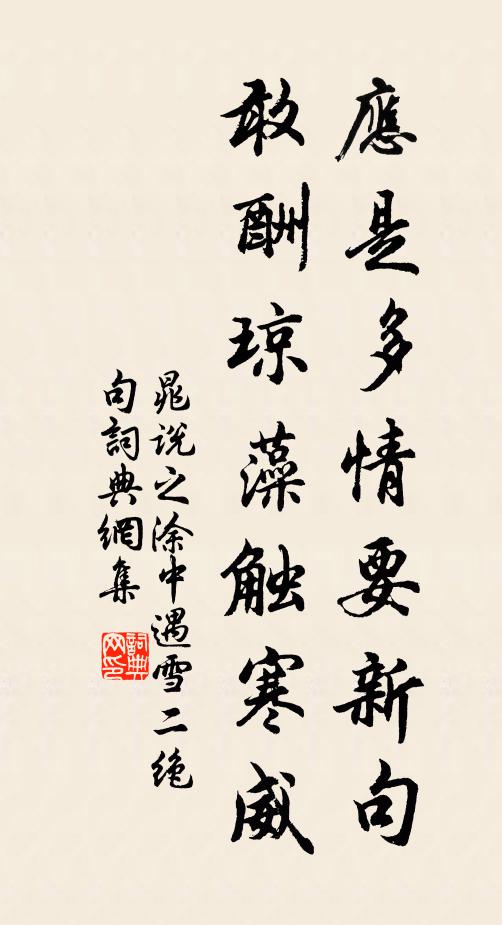 應是多情要新句
敢酬琼藻触寒威
晁说之涂中遇雪二绝
句詞典網集
詞典网印